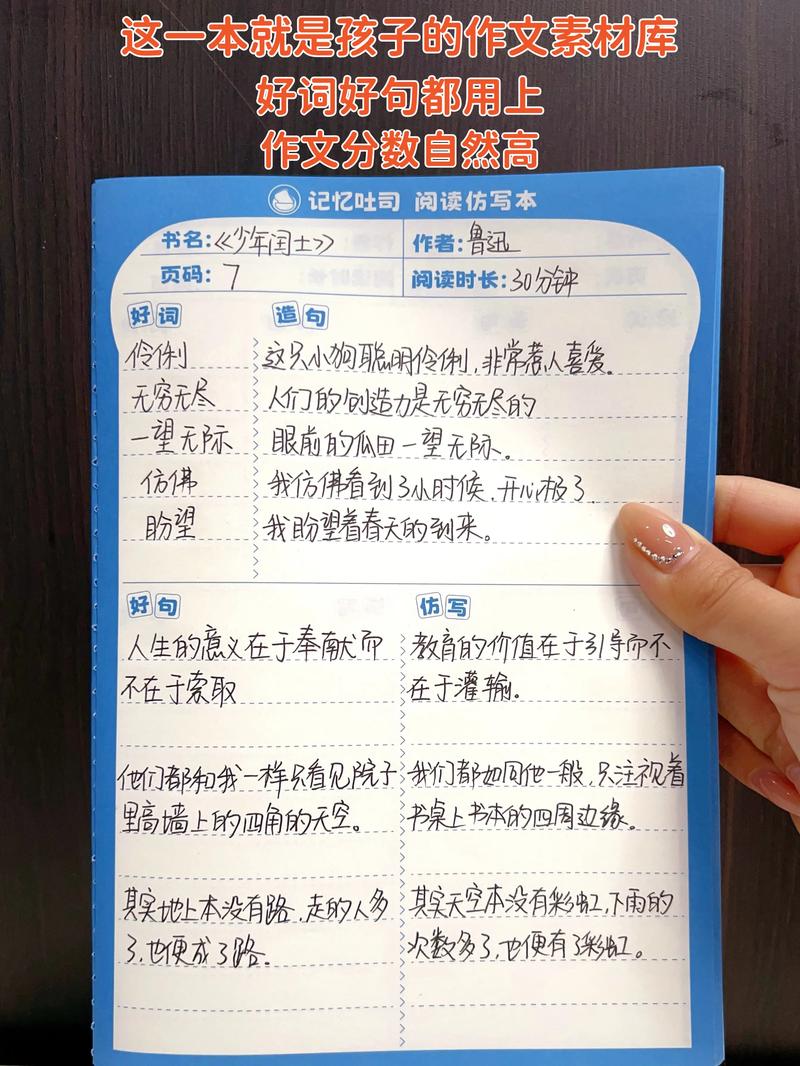 这一本就是孩子的作文素材库
好词好句都用上
作文分数自然高
记忆吐司 阅读仿写本
书名:《少年闰土》 作者:鲁迅
页码: 7 阅读时长:30分钟
好词 造句
伶俐 这只小狗聪明伶俐,非常惹人喜爱。
无穷无尽 人们的创造力是无穷无尽的
一望无际 眼前的瓜田一望无际。
仿佛 我仿佛看到了小时候,开心极了.
盼望 我盼望着春天的到来。
好句 仿写
人生的意义在于奉献而 教育的价值在于引导而不
不在于索取 在于灌输。
他们都和我一样只看见院子 我们都如同他一般,只注视着
里高墙上的四角的天空。 书桌上书本的四周边缘。
其实地上本没有路,走的人多 其实天空本没有彩虹,下雨的
了,也便成了路。 次数多了,也便有了彩虹。